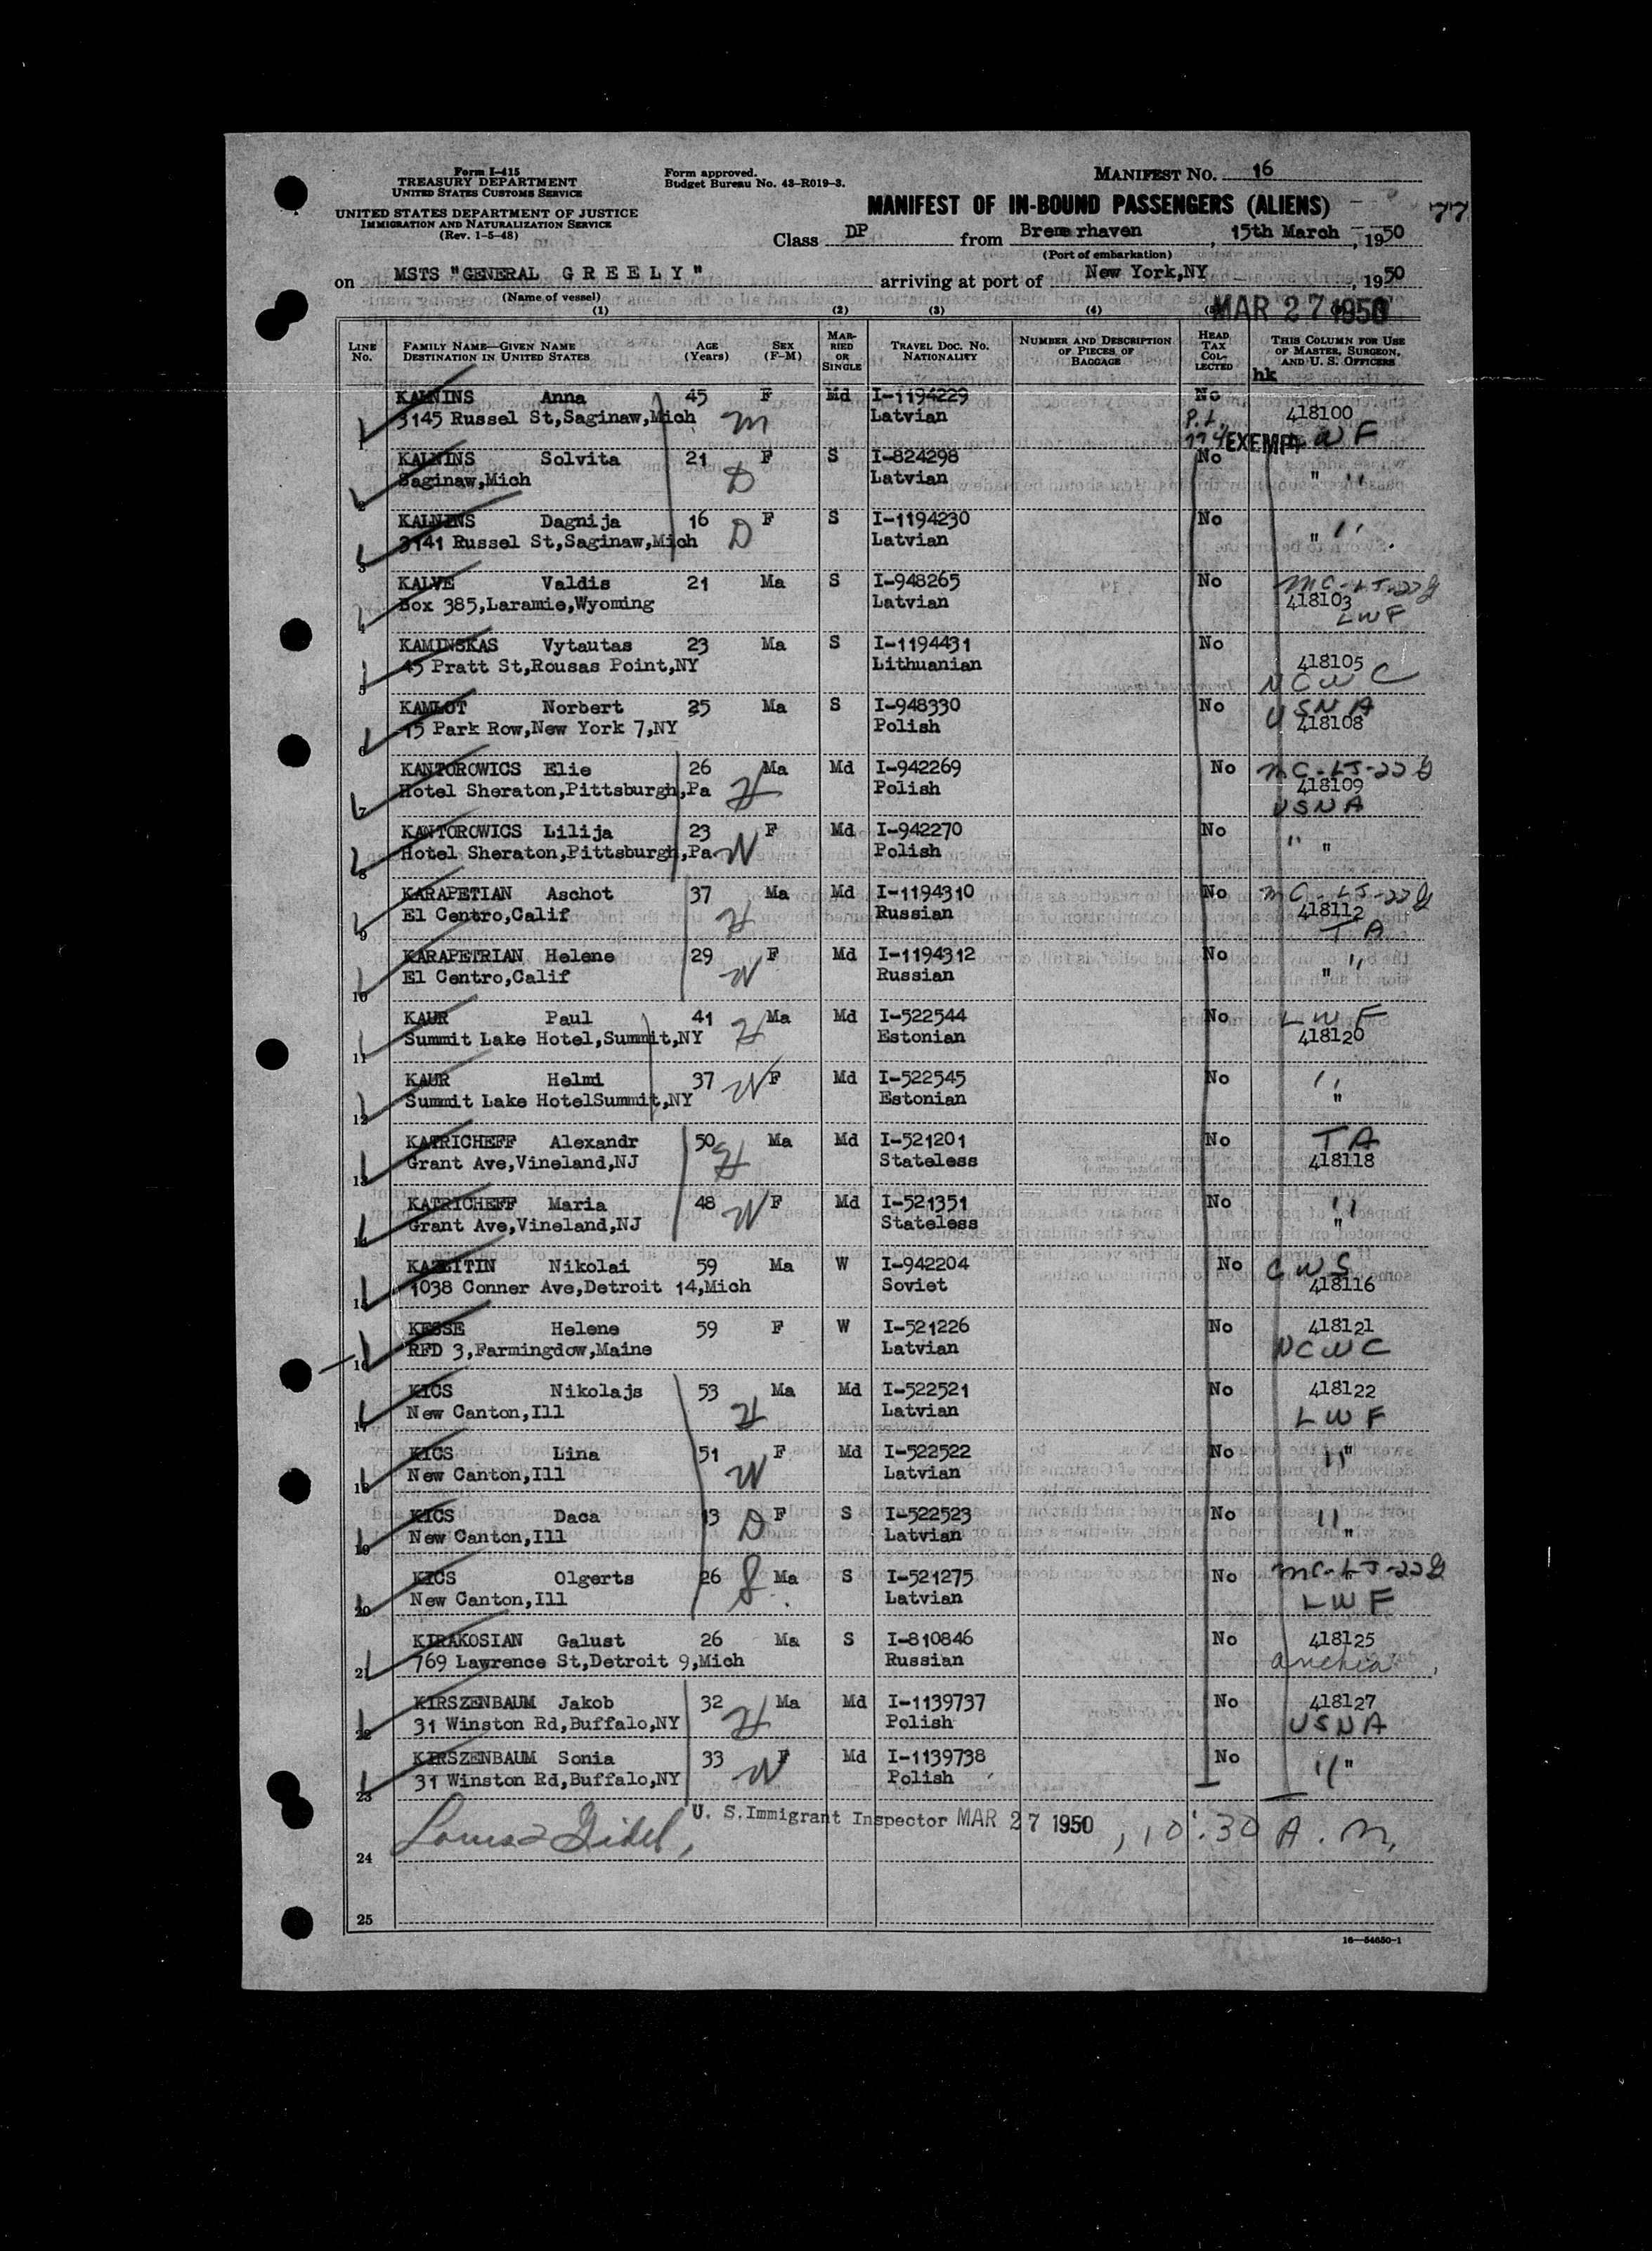 Form I-415
TREASURY DEPARTMENT
UNITED STATES CUSTOMS SERVICE
UNITED STATES DEPARTMENT OF JUSTICE
IMMIGRATION AND NATURALIZATION SERVICE
(Rev. 1-5-48)
Form approved.
Budget Bureau No. 43-R019-3.
MANIFEST No. 16
MANIFEST OF IN-BOUND PASSENGERS (ALIENS)
77
Class DP from Bremerhaven, 15th March, 1950
(Port of embarkation)
on MSTS "GENERAL GREELY" arriving at port of New York,NY, 1950
(Name of vessel)
MAR 27 1950
(1) (2) (3) (4)
LINE No. FAMILY NAME—GIVEN NAME DESTINATION IN UNITED STATES AGE (Years) SEX (F-M) MARRIED OR SINGLE TRAVEL DOC. No. NATIONALITY NUMBER AND DESCRIPTION OF PIECES OF BAGGAGE HEAD TAX COLLECTED THIS COLUMN FOR USE OF MASTER, SURGEON, AND U. S. OFFICERS
hk
KALNINS Anna 45 F Md I-1194229 No 418100
1 3145 Russel St,Saginaw,Mich M Latvian EXEMPT WF
KALNINS Solvita 21 F S I-824298 No
2 Saginaw,Mich D Latvian " "
KALNINS Dagnija 16 F S I-1194230 No
3 3141 Russel St,Saginaw,Mich D Latvian " "
KALVE Valdis 21 Ma S I-948265 No MC-LJ-22g
4 Box 385,Laramie,Wyoming Latvian 418103
LWF
KAMINSKAS Vytautas 23 Ma S I-1194431 No
5 45 Pratt St,Rousas Point,NY Lithuanian 418105
NCWC
KAMLOT Norbert 25 Ma S I-948330 No USNA
6 15 Park Row,New York 7,NY Polish 418108
KANTOROWICS Elie 26 Ma Md I-942269 No MC-LJ-22g
7 Hotel Sheraton,Pittsburgh,Pa H Polish 418109
USNA
KANTOROWICS Lilija 23 F Md I-942270 No
8 Hotel Sheraton,Pittsburgh,Pa W Polish " "
KARAPETIAN Aschot 37 Ma Md I-1194310 No MC-LJ-22g
9 El Centro,Calif H Russian 418112
TA
KARAPETRIAN Helene 29 F Md I-1194312 No
10 El Centro,Calif W Russian " "
KAUR Paul 41 Ma Md I-522544 No LWF
11 Summit Lake Hotel,Summit,NY H Estonian 418120
KAUR Helmi 37 F Md I-522545 No "
12 Summit Lake HotelSummit,NY W Estonian "
KATRICHEFF Alexandr 50 Ma Md I-521201 No TA
13 Grant Ave,Vineland,NJ H Stateless 418118
KATRICHEFF Maria 48 F Md I-521351 No "
14 Grant Ave,Vineland,NJ W Stateless "
Nikolai 59 Ma W I-942204 No CWS
15 1038 Conner Ave,Detroit 14,Mich Soviet 418116
KESSE Helene 59 F W I-521226 No 418121
16 RFD 3,Farmingdow,Maine Latvian NCWC
KICS Nikolajs 53 Ma Md I-522521 No 418122
17 New Canton,Ill H Latvian LWF
KICS Lina 51 F Md I-522522 No " "
18 New Canton,Ill W Latvian
KICS Daca 13 F S I-522523 No "
19 New Canton,Ill D Latvian "
KICS Olgerts 26 Ma S I-521275 No MC-LJ-22g
20 New Canton,Ill S Latvian LWF
KIRAKOSIAN Galust 26 Ma S I-810846 No 418125
21 769 Lawrence St,Detroit 9,Mich Russian
KIRSZENBAUM Jakob 32 Ma Md I-1139737 No 418127
22 31 Winston Rd,Buffalo,NY H Polish USNA
KIRSZENBAUM Sonia 33 F Md I-1139738 No " "
23 31 Winston Rd,Buffalo,NY W Polish
U. S. Immigrant Inspector MAR 27 1950, 10:30 A.M.
24
25
16—54650-1